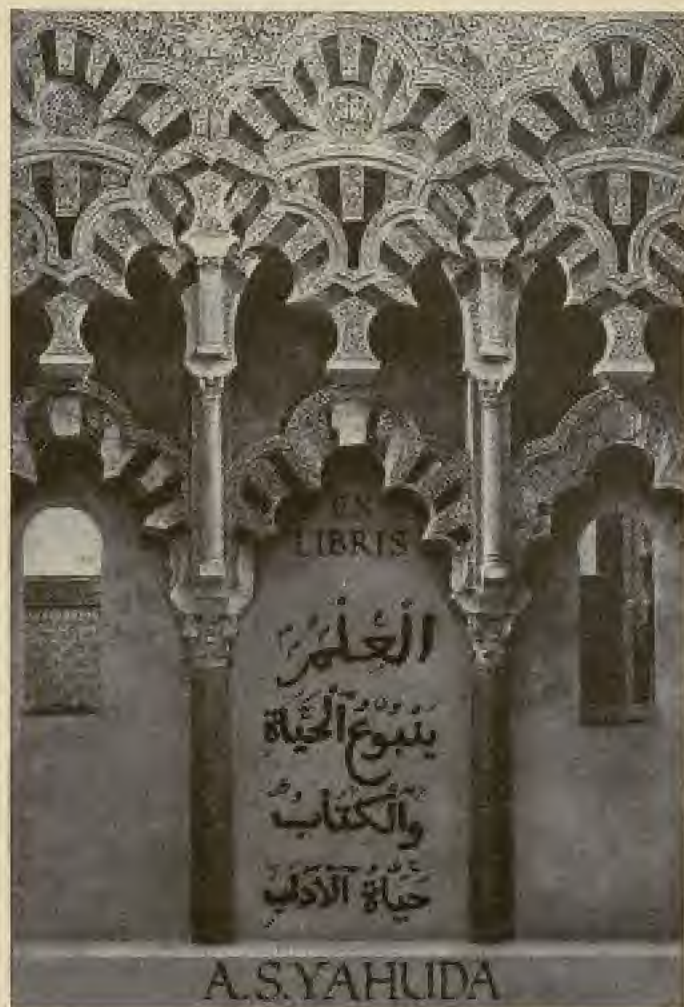 EX
LIBRIS
العلم
ينبوع الحياة
والكتاب
حياة الآداب
A.S. YAHUDA